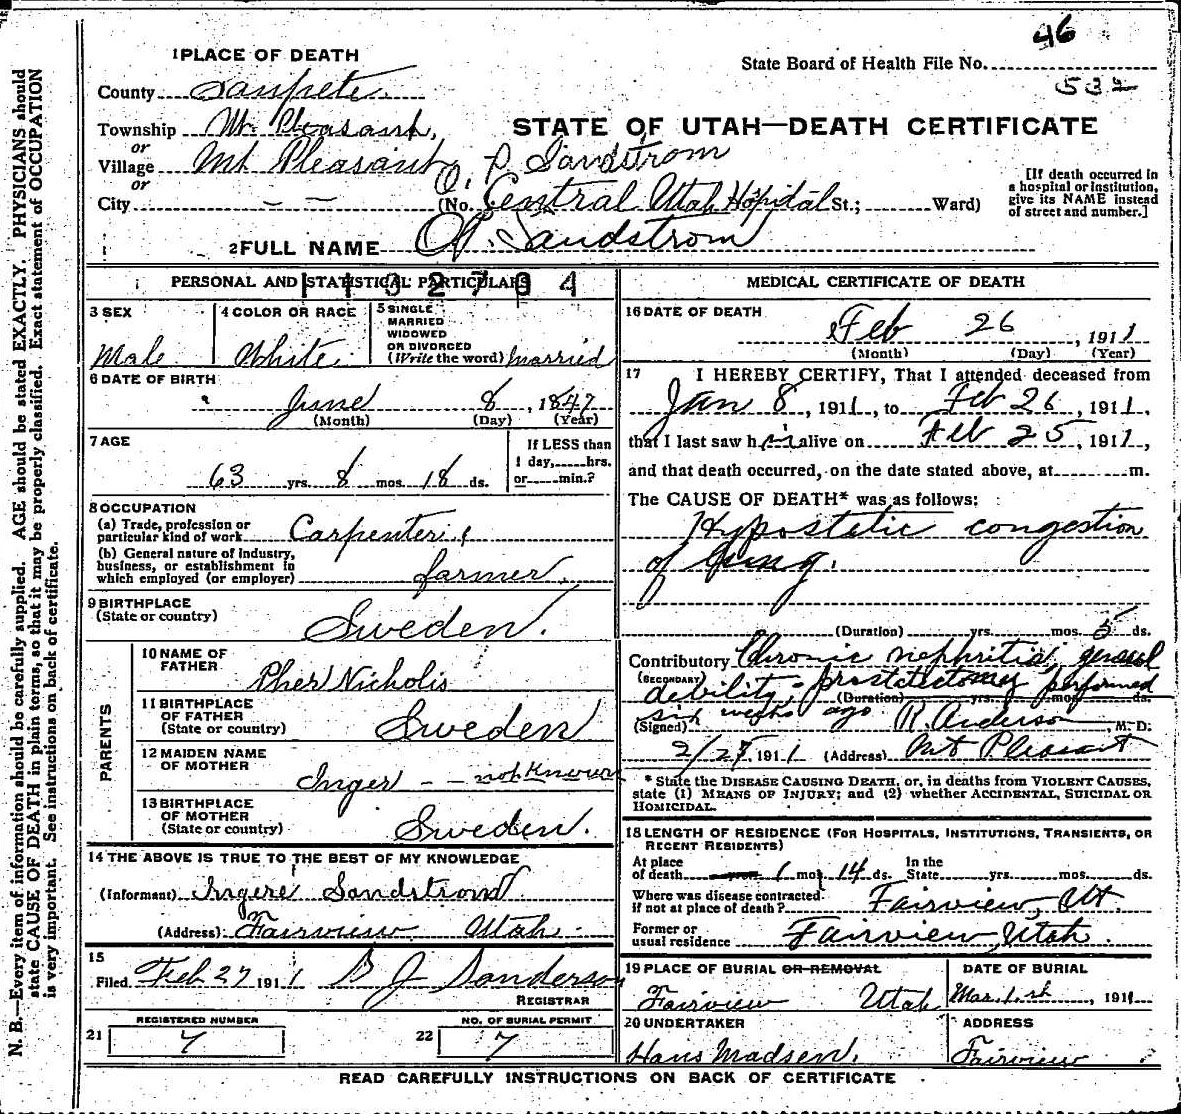 46
State Board of Health File No.
532
1 PLACE OF DEATH
County Sanpete
Township Mt. Pleasant,
or
Village Mt Pleasant
or
City — —
STATE OF UTAH—DEATH CERTIFICATE
O. P. Sandstrom
(No. Central Utah Hospital St.; Ward)
[If death occurred in
a hospital or institution,
give its NAME instead
of street and number.]
2 FULL NAME O.P. Sandstrom
PERSONAL AND STATISTICAL PARTICULARS
3 SEX
Male
4 COLOR OR RACE
White
5 SINGLE
MARRIED
WIDOWED
OR DIVORCED
(Write the word) married
6 DATE OF BIRTH
June 8, 1847
(Month) (Day) (Year)
7 AGE
63 yrs. 8 mos. 18 ds.
If LESS than
1 day, hrs.
or min.?
8 OCCUPATION
(a) Trade, profession or
particular kind of work Carpenter &
(b) General nature of industry,
business, or establishment in
which employed (or employer) farmer.
9 BIRTHPLACE
(State or country) Sweden.
PARENTS
10 NAME OF
FATHER Pher Nicholis
11 BIRTHPLACE
OF FATHER
(State or country) Sweden
12 MAIDEN NAME
OF MOTHER Inger — — not known
13 BIRTHPLACE
OF MOTHER
(State or country) Sweden.
14 THE ABOVE IS TRUE TO THE BEST OF MY KNOWLEDGE
(Informant) Ingere Sandstrom
(Address) Fairview Utah
15
Filed Feb 27 1911 Sanderson
REGISTRAR
REGISTERED NUMBER
21 7
NO. OF BURIAL PERMIT
22 7
MEDICAL CERTIFICATE OF DEATH
16 DATE OF DEATH
Feb 26, 1911
(Month) (Day) (Year)
17 I HEREBY CERTIFY, That I attended deceased from
Jan 8, 1911, to Feb 26, 1911,
that I last saw him alive on Feb 25, 1911,
and that death occurred, on the date stated above, at m.
The CAUSE OF DEATH* was as follows:
Hypostatic congestion
of lung.
(Duration) yrs. mos. 5 ds.
Contributory Chronic nephritis, general
(SECONDARY)
debility - prostatectomy performed
(Duration) yrs. mos. ds.
six weeks ago
(Signed) R. Anderson, M. D.
2/27, 1911 (Address) Mt Pleasant
* State the DISEASE CAUSING DEATH, or, in deaths from VIOLENT CAUSES,
state (1) MEANS OF INJURY; and (2) whether ACCIDENTAL, SUICIDAL OR
HOMICIDAL.
18 LENGTH OF RESIDENCE (FOR HOSPITALS, INSTITUTIONS, TRANSIENTS, OR
RECENT RESIDENTS)
At place
of death yrs. 1 mos. 14 ds.
In the
State yrs. mos. ds.
Where was disease contracted
if not at place of death? Fairview, Ut.
Former or
usual residence Fairview, Utah.
19 PLACE OF BURIAL OR REMOVAL
Fairview Utah
DATE OF BURIAL
Mar. 1.st, 1911
20 UNDERTAKER
Hans Madsen.
ADDRESS
Fairview
READ CAREFULLY INSTRUCTIONS ON BACK OF CERTIFICATE
N. B.—Every item of information should be carefully supplied. AGE should be stated EXACTLY. PHYSICIANS should
state CAUSE OF DEATH in plain terms, so that it may be properly classified. Exact statement of OCCUPATION
is very important. See instructions on back of certificate.